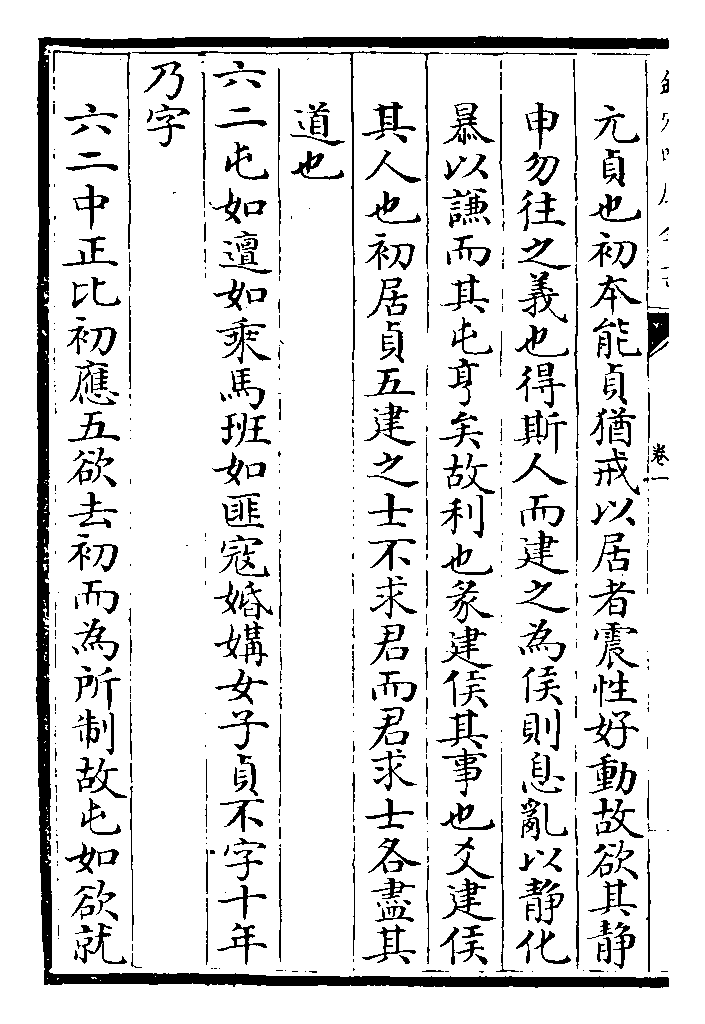 卷一
元貞也初本能貞猶戒以居者震性好動故欲其静
申勿往之義也得斯人而建之為侯則息亂以静化
暴以謙而其屯亨矣故利也彖建侯其事也爻建侯
其人也初居貞五建之士不求君而君求士各盡其
道也
六二屯如邅如乗馬班如匪寇婚媾女子貞不字十年
乃字
六二中正比初應五欲去初而為所制故屯如欲就